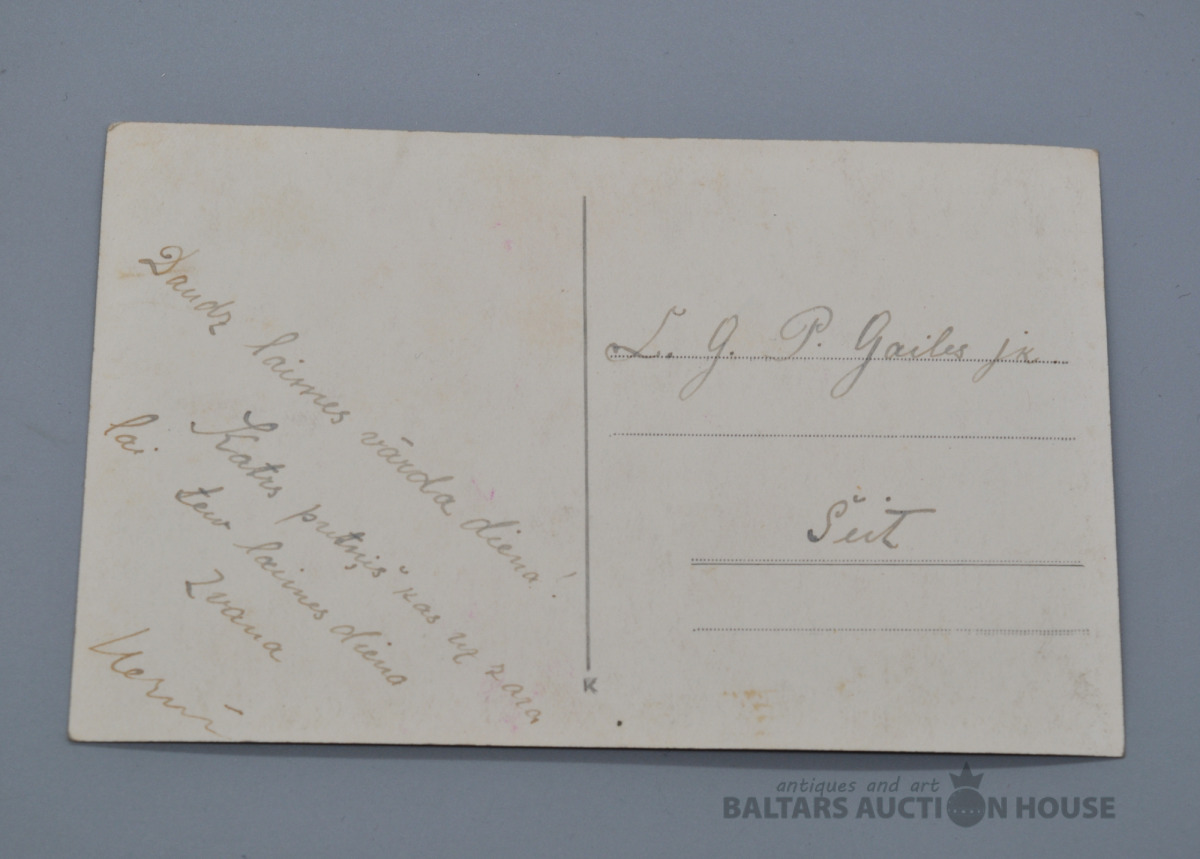 Daudz laimes vārda diena!
Katrs putniņš kas uz zara
lai tew laimes diena
zvana
L. G. P. Gailes jk.
Šeit
K
antiques and art
BALTARS AUCTION HOUSE